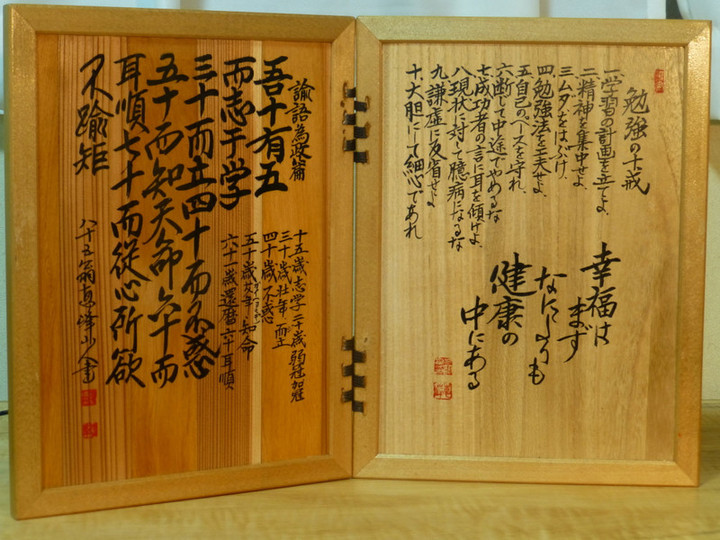 勉強の十戒
一.学習の計画を立てよ.
二.精神を集中せよ.
三.ムダをはぶけ.
四.勉強法を工夫せよ.
五.自己のペースを守れ.
六.断じて中途でやめるな
七.成功者の言に耳を傾けよ.
八.現状に対して臆病になるな
九.謙虚に反省せよ
十.大胆にして細心であれ
幸福は
まず
なによりも
健康の
中にある
論語為政篇
吾十有五
而志于学
三十而立四十而不惑
五十而知天命六十而
耳順七十而從心所欲
不踰矩
十五歳志学二十歳弱冠加冠
三十歳壮年.而立
四十歳不惑
五十歳艾年.知命
六十一歳還暦六十耳順
八十五翁 山人書